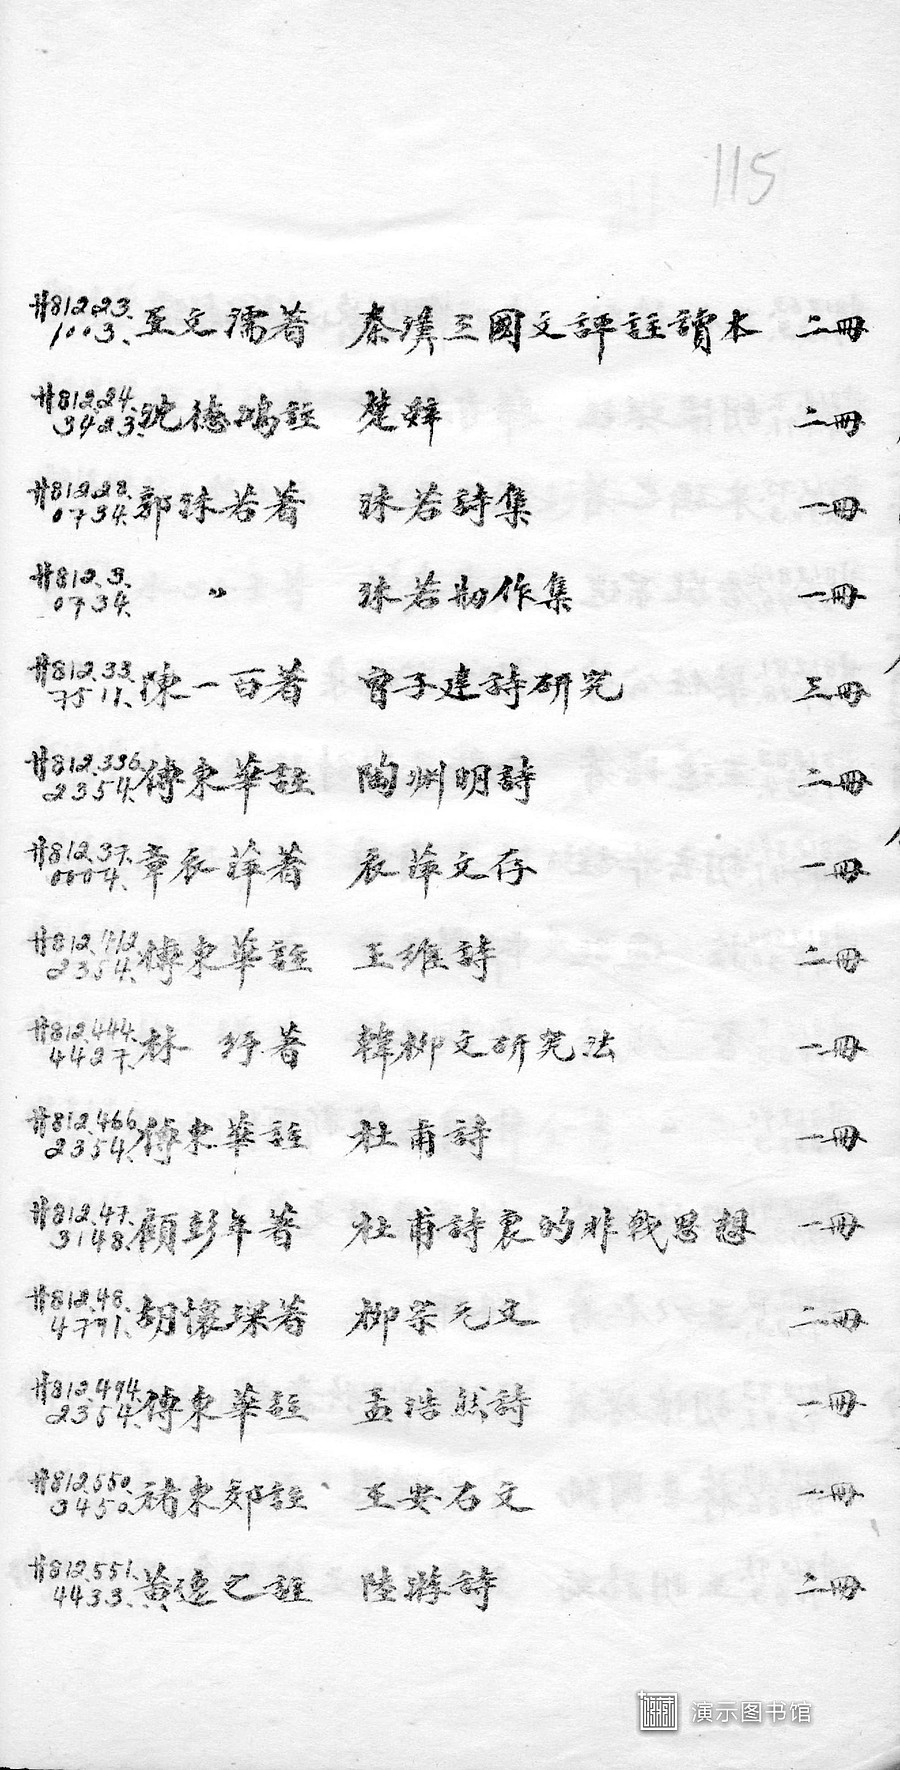 115
廿812.23. 1003. 王文濡著 秦漢三國文評註讀本 二冊
廿812.24. 3423. 沈德鴻註 楚辭 二冊
廿812.28. 0734. 郭沫若著 沫若詩集 一冊
廿812.3. 0734. 〃 沫若劝作集 一冊
廿812.33. 7511. 陳一百著 曹子建詩研究 三冊
廿812.336. 2354. 傅東華註 陶淵明詩 二冊
廿812.37. 0004. 章衣萍著 衣萍文存 一冊
廿812.412. 2354. 傅東華註 王維詩 二冊
廿812.444. 4427. 林紓著 韓柳文研究法 一冊
廿812.466. 2354. 傅東華註 杜甫詩 一冊
廿812.47. 3148. 顧彭年著 杜甫詩裏的非戰思想 一冊
廿812.48. 4791. 胡懷琛著 柳宗元文 二冊
廿812.494. 2354. 傅東華註 孟浩然詩 一冊
廿812.550. 3450. 褚東郊註 王安石文 一冊
廿812.551. 4433. 黃逸之註 陸游詩 二冊
演示图书馆